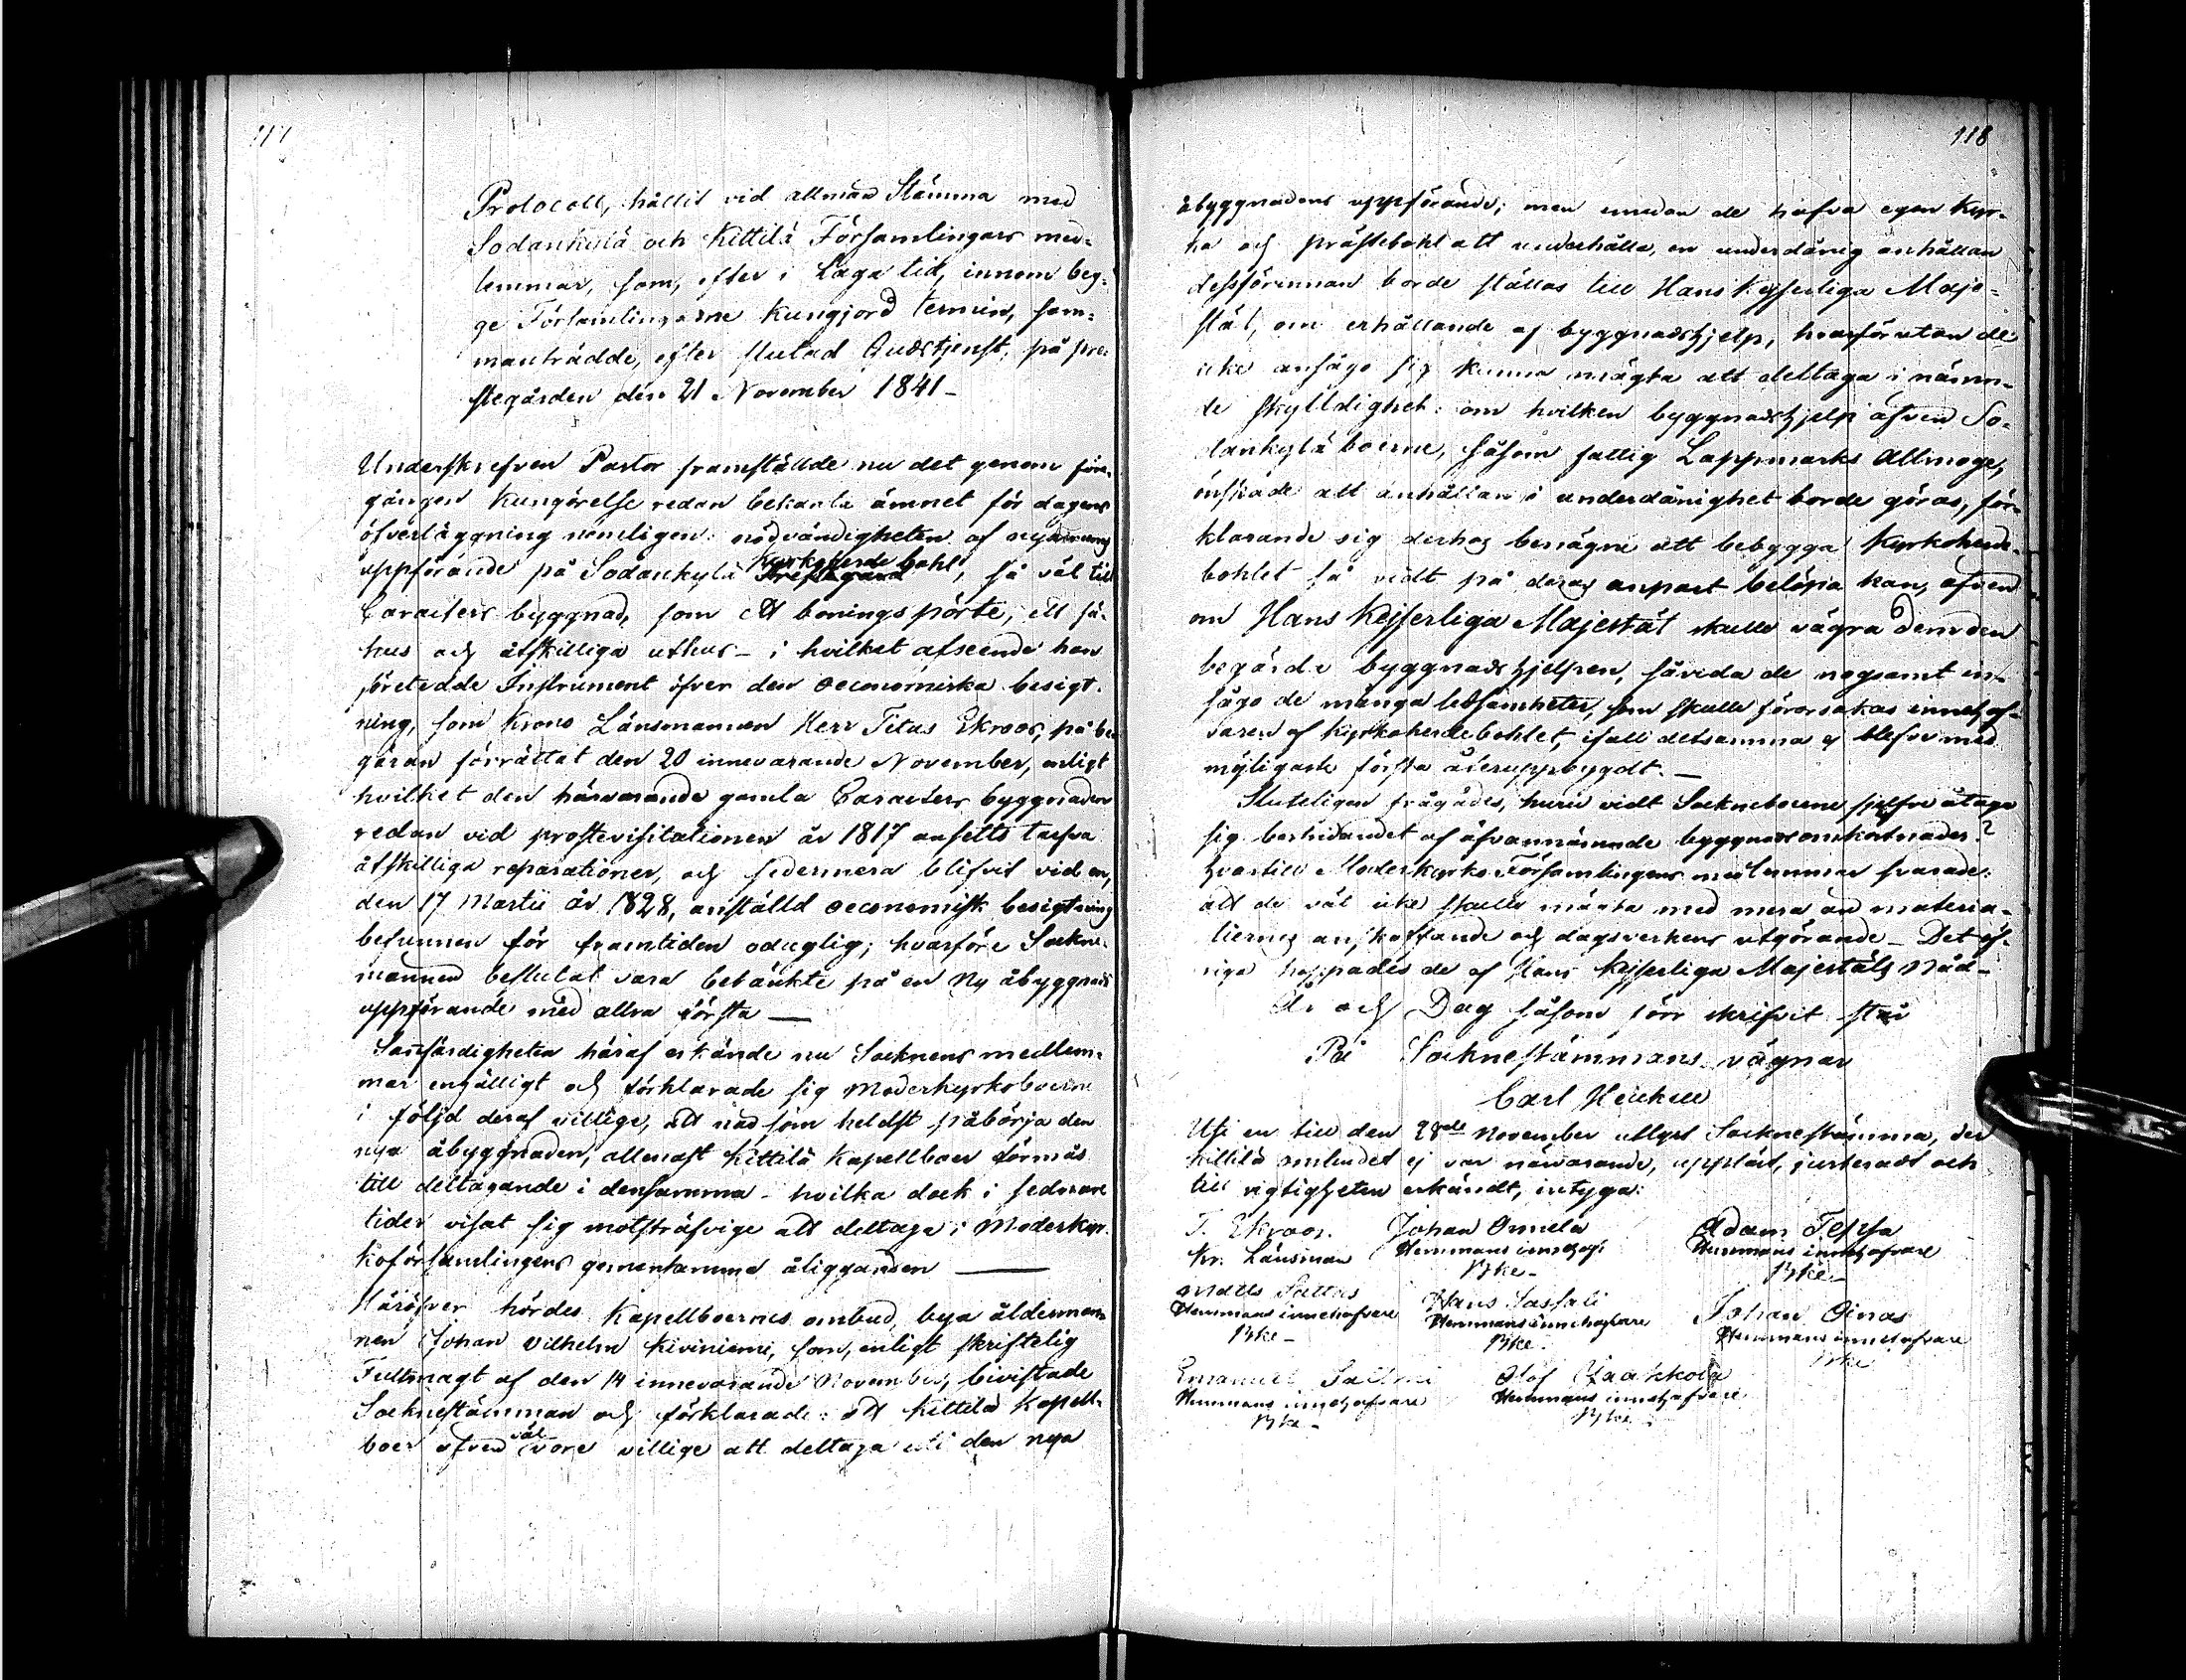 117
Protocoll, hållit vid allmän Stämma med
Sodankylä och Kittilä Församlingars med-
lemmar, som, efter i Laga tid, innom beg-
ge Församlingarne Kungjord termin, sam-
manträdde, efter slutad Gudstjenst, på pre-
stegården den 21 November 1841 –
Underskrefven Pastor framställde nu det genom före-
gången Kungörelse redan bekanta ämnet för dagens
öfverläggning nemligen: nödvändigheten af
uppförande på Sodankylä Prestegård Kyrkoherde bohl, så väl till
Caracters byggnad, som ett bonings pörte, ett fä-
hus och åtskilliga uthus – i hvilket afseende han
företedde Instrument öfver den oeconomiska besigt-
ning, som Krono Länsmannen Herr Titus Ekroos, på be-
gäran förrättat den 20 innevarande November, enligt
hvilket den härvarande gamla Caracters byggnaden
redan vid prostevisitationen år 1817 ansetts tarfva
åtskilliga reparationer, och sedermera blifvit vid en,
den 17 Martii år 1828, anställd oeconomisk besigtning
befunnen för framtiden oduglig; hvarföre Sockne-
männen beslutat vara betänkte på en ny åbyggnads
uppförande med allra första —
Sanfärdigheten häraf erkände nu Socknens medlem-
mar enhälligt och förklarade sig Moderkyrkoboerne
i följd deraf villige, att när som heldst påbörja den
nya åbyggnaden, allenast Kittilä Kapellboer förmås
till deltagande i densamma – hvilka dock i sednare
tider visat sig motsträfvige att deltaga i Moderkyr-
koförsamlingens gemensamma åligganden —
Häröfver hördes Kapellboernes ombud, bya ålderman-
nen Johan Vilhelm Kiviniemi, som, enligt skriftelig
Fullmagt af den 14 innevarande November, bevistade
Socknestämman och förklarade: att Kittilä Kapell-
boer äfven väl vore villige att deltaga uti den nya
118
åbyggnadens uppförande; men emedan de hafva egen Kyr-
ka och prästebohl att underhålla, en underdånig anhållan
dessförinnan borde ställas till Hans Kejserliga Maje-
stät, om erhållande af byggnadshjelp, hvarförutan de
icke ansågo sig kunna mägta att deltaga i nämn-
de skylldighet: om hvilken byggnadshjelp äfven So-
dankyläboerne, såsom fattig Lappmarks Allmoge,
önskade att anhållan i underdånighet borde göras, för-
klarande sig derhos benägne att bebygga Kyrkoherde-
bohlet så vidt på deras anpart belöpa kan, äfven
om Hans Kejserliga Majestät skulle vägra dem den
begärde byggnadshjelpen, såvida de nogsamt in-
sågo de många ledsamheter, som skulle förorsakas innehaf-
varen af Kyrkoherdebohlet, ifall detsamma ej blefve med
möjligaste första återuppbygdt. –
Sluteligen frågades, huru vidt Sockneboerne sjelfve åtaga
sig bestridandet af ofvannämnde byggnadsomkostnader?
hvartill Moderkyrko Församlingens medlemmar svarade:
att de väl icke skulle mägta med mera än materia-
liernes anskaffande och dagsverkens utgörande – Det öf-
riga hoppades de af Hans Kejserliga Majestäts Nåd –
År och Dag såsom förr skrifvit står
På Socknestämmans vägnar
Carl Heickell
Uti en till den 28de November utlyst Socknestämma, der
Kittilä ombudet ej var närvarande, uppläst, justeradt och
till rigtigheten erkändt, intyga:
T. Ekroos. Johan Onnela Adam Teppa
Kr. Länsman Hemmans innehaf: Hemmans innehafvare
Bke – Bke –
Matts Hans Sassali Johan Oinas
Hemmans innehafvare Hemmans innehafvare Hemmans innehafvare
Bke – Bke – Bke
Emanuel Olof Jaakkola
Hemmans innehafvare Hemmans innehafvare
Bke – Bke –